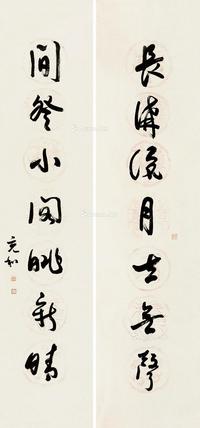 長溝流月去無聲
閒登小閣眺新晴
充和